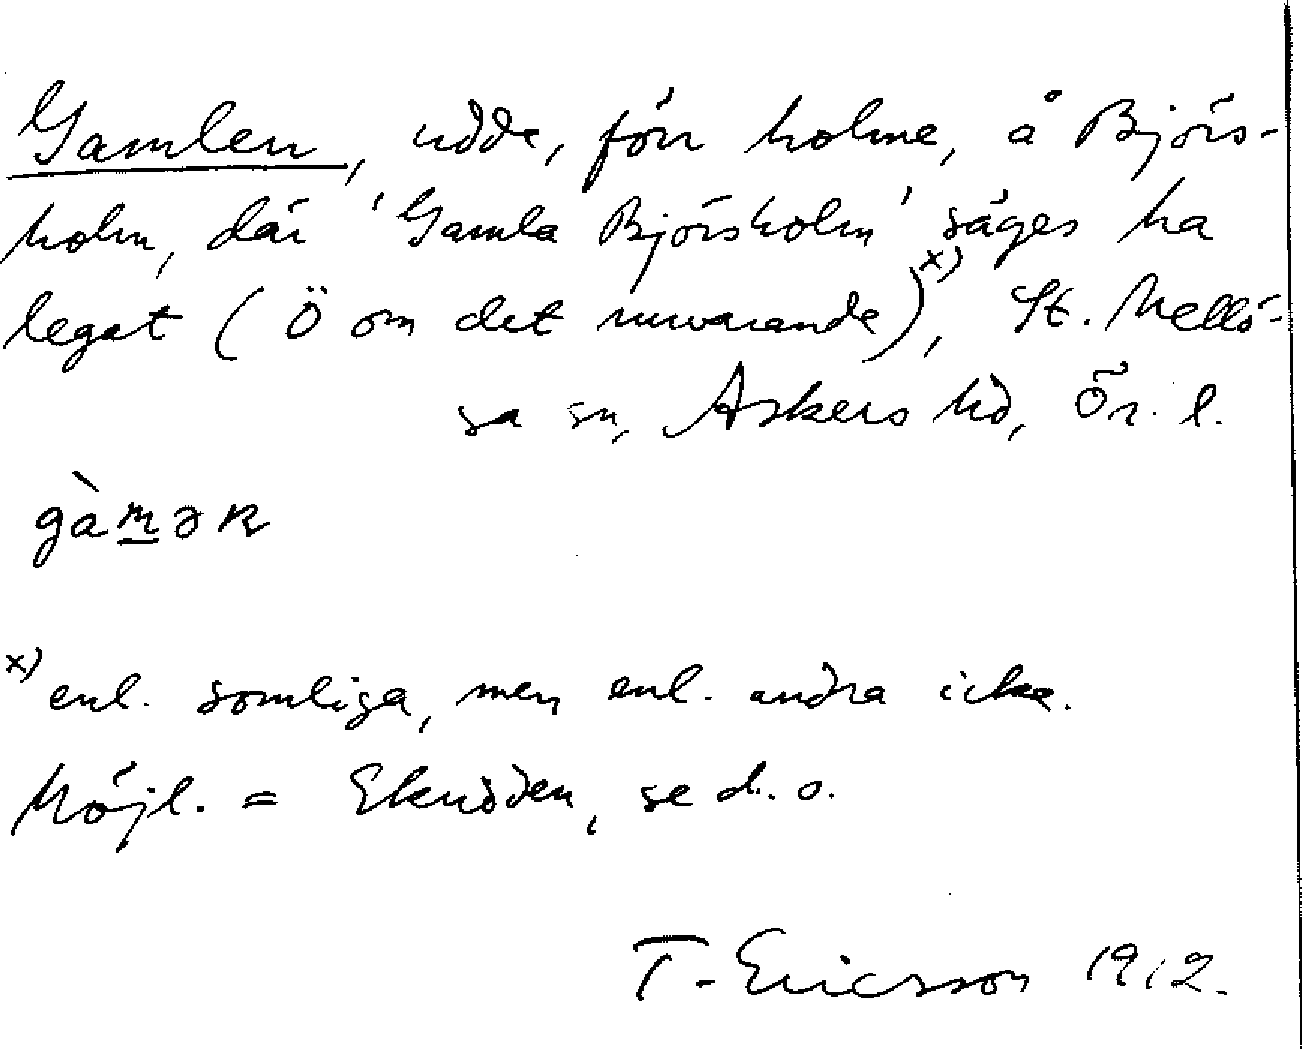 Gamlen, udde, förr holme, å Björs-
holm, där 'Gamla Björsholm' säges ha
legat (Ö om det nuvarande)x), St. Mellö-
sa sn, Askers hd, Ör. l.
gàm̲ər
x) enl. somliga, men enl. andra icke.
Möjl. = Ekudden, se d. o.
T. Ericsson 1912.